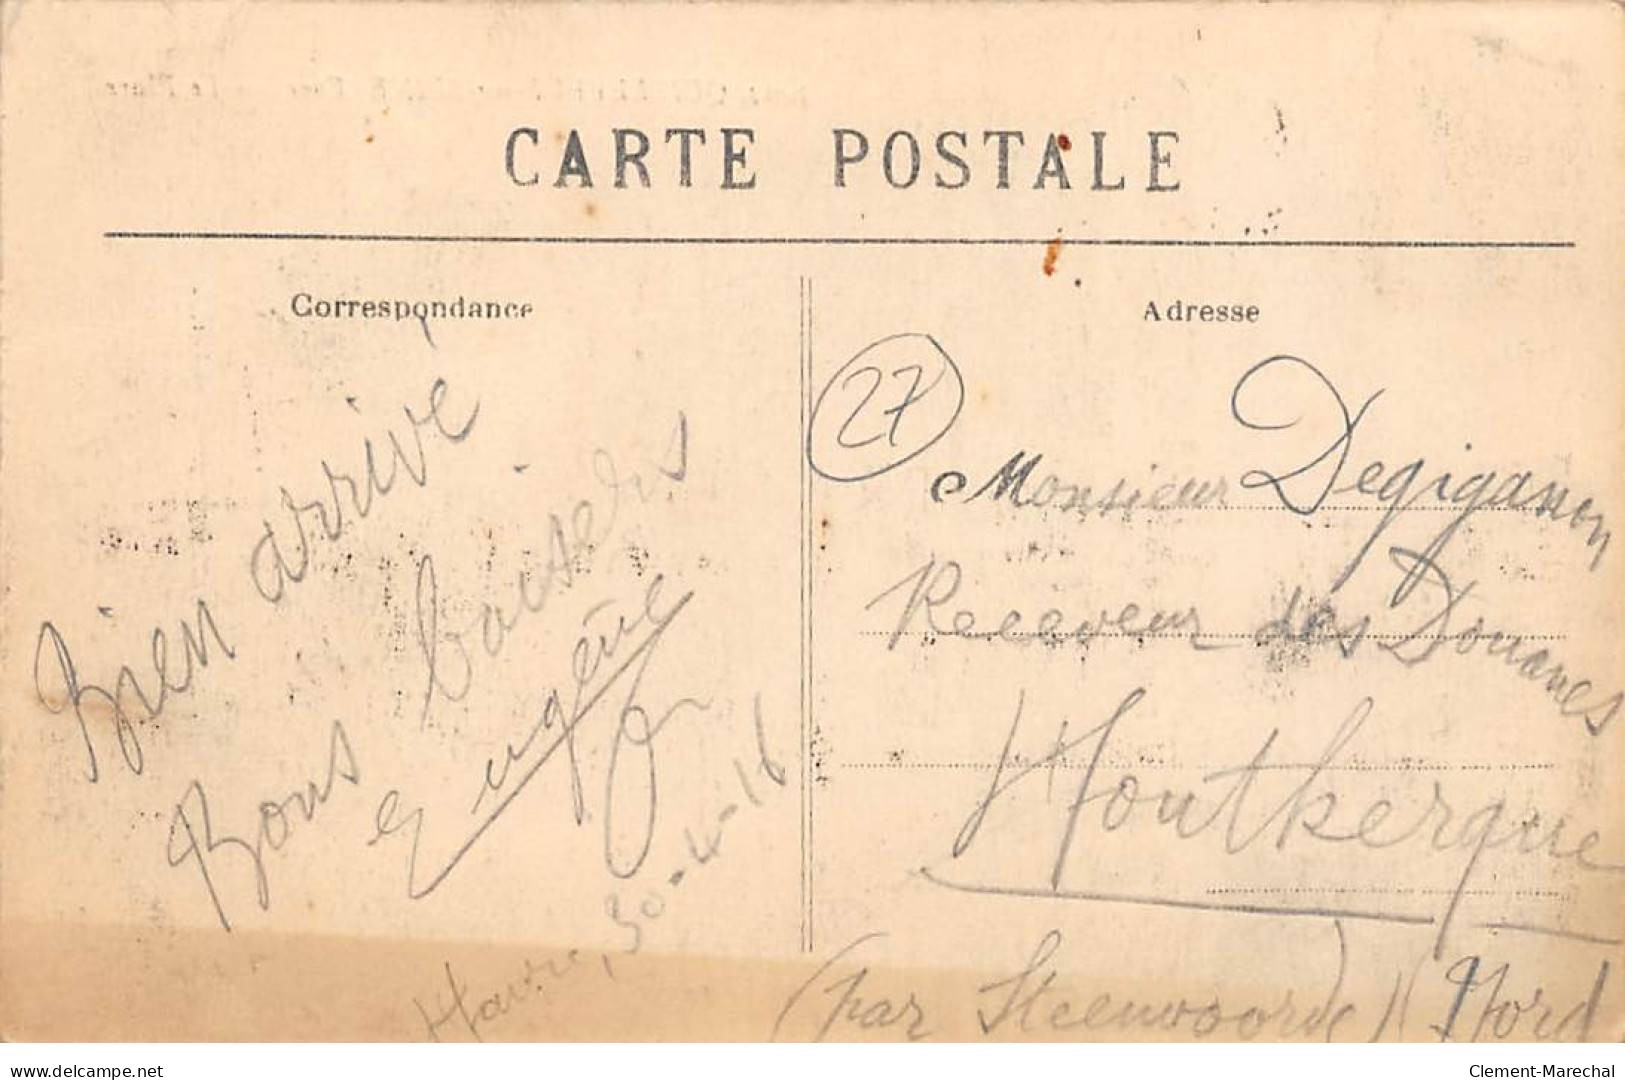 CARTE POSTALE
Correspondance
Adresse
27
Bien arrivé
Bons baisers
Eugène
Havre, 30-4-16
Monsieur Degiganon
Receveur des Douanes
Houtkerque
(par Steenwoorde) (Nord
www.delcampe.net
Clement-Marechal